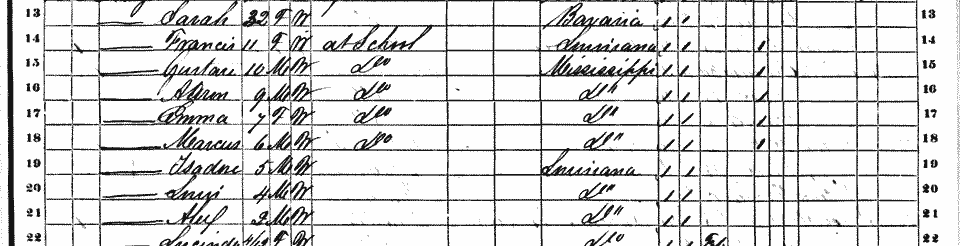 13 —— Sarah 32 F W Bavaria ' ' 13
14 —— Francis 11 F W at School Louisiana ' ' ' 14
15 —— Gustave 10 M W Do Mississippi ' ' ' 15
16 —— Aaron 9 M W Do Do ' ' ' 16
17 —— Emma 7 F W Do Do ' ' ' 17
18 —— Marcus 6 M W Do Do ' ' ' 18
19 —— Isadore 5 M W Louisiana ' ' 19
20 —— 4 M W Do ' ' 20
21 —— Alex 2 M W Do ' ' 21
22 —— Lucinda F W Do ' ' 22